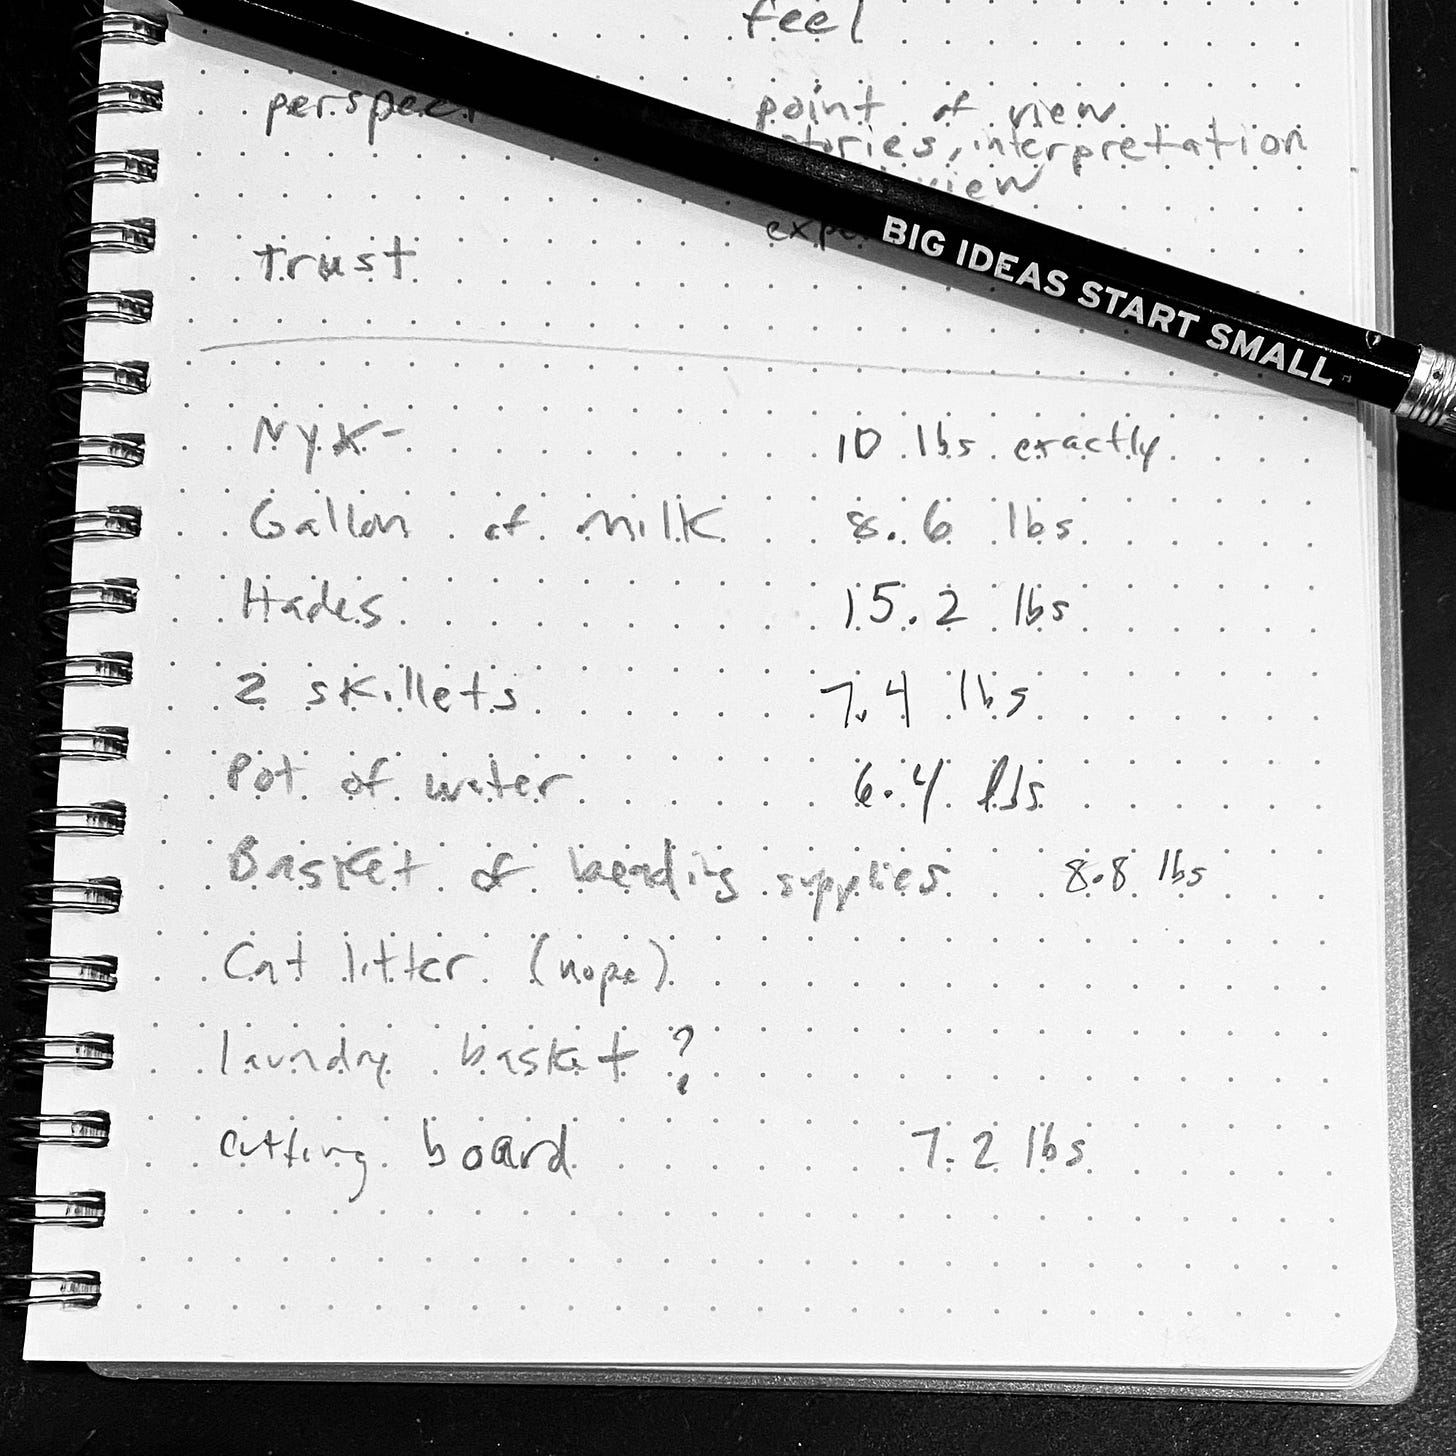 feel
point of view
interpretation
trust
BIG IDEAS START SMALL
Nyx- 10 lbs exactly
Gallon of milk 8.6 lbs
Hades 15.2 lbs
2 skillets 7.4 lbs
Pot of water 6.4 lbs
Basket of beading supplies 8.8 lbs
Cat litter (nope)
laundry basket?
cutting board 7.2 lbs